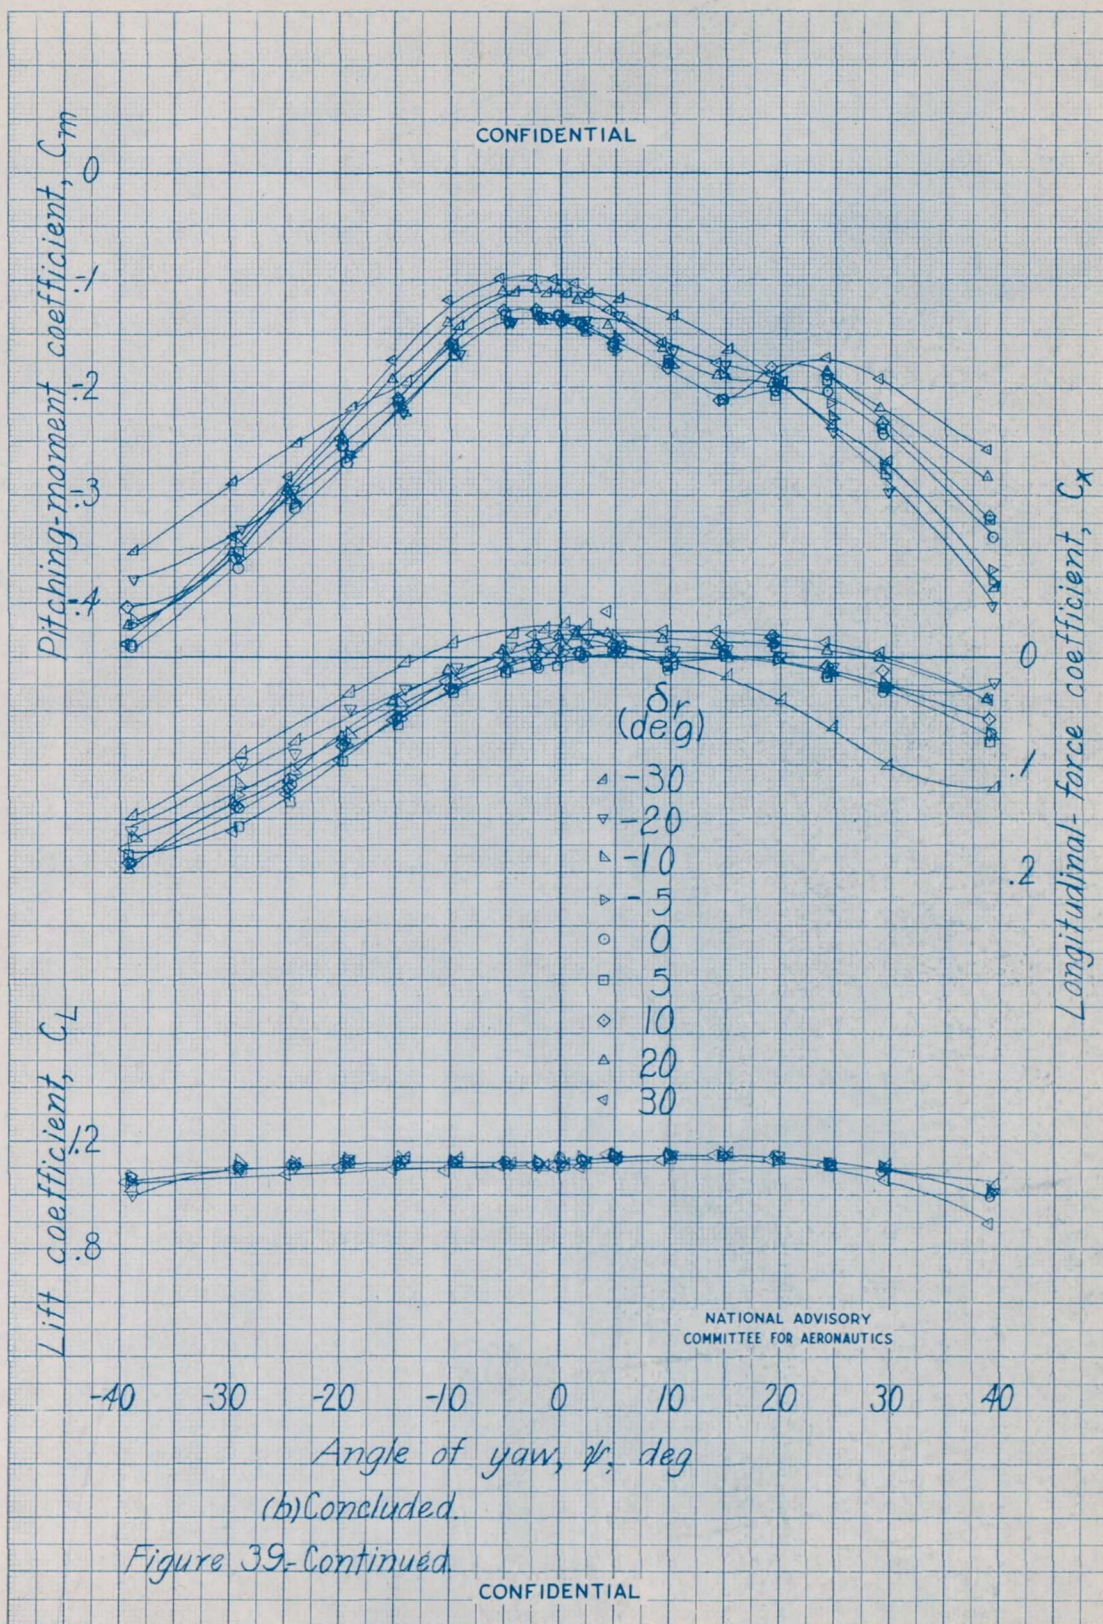 CONFIDENTIAL
Pitching-moment coefficient, Cm
0
-.1
-.2
-.3
-.4
Longitudinal-force coefficient, Cx
0
.1
.2
δr
(deg)
-30
-20
-10
-5
0
5
10
20
30
Lift coefficient, CL
1.2
.8
NATIONAL ADVISORY
COMMITTEE FOR AERONAUTICS
-40 -30 -20 -10 0 10 20 30 40
Angle of yaw, ψ, deg
(b) Concluded.
Figure 39.-Continued.
CONFIDENTIAL